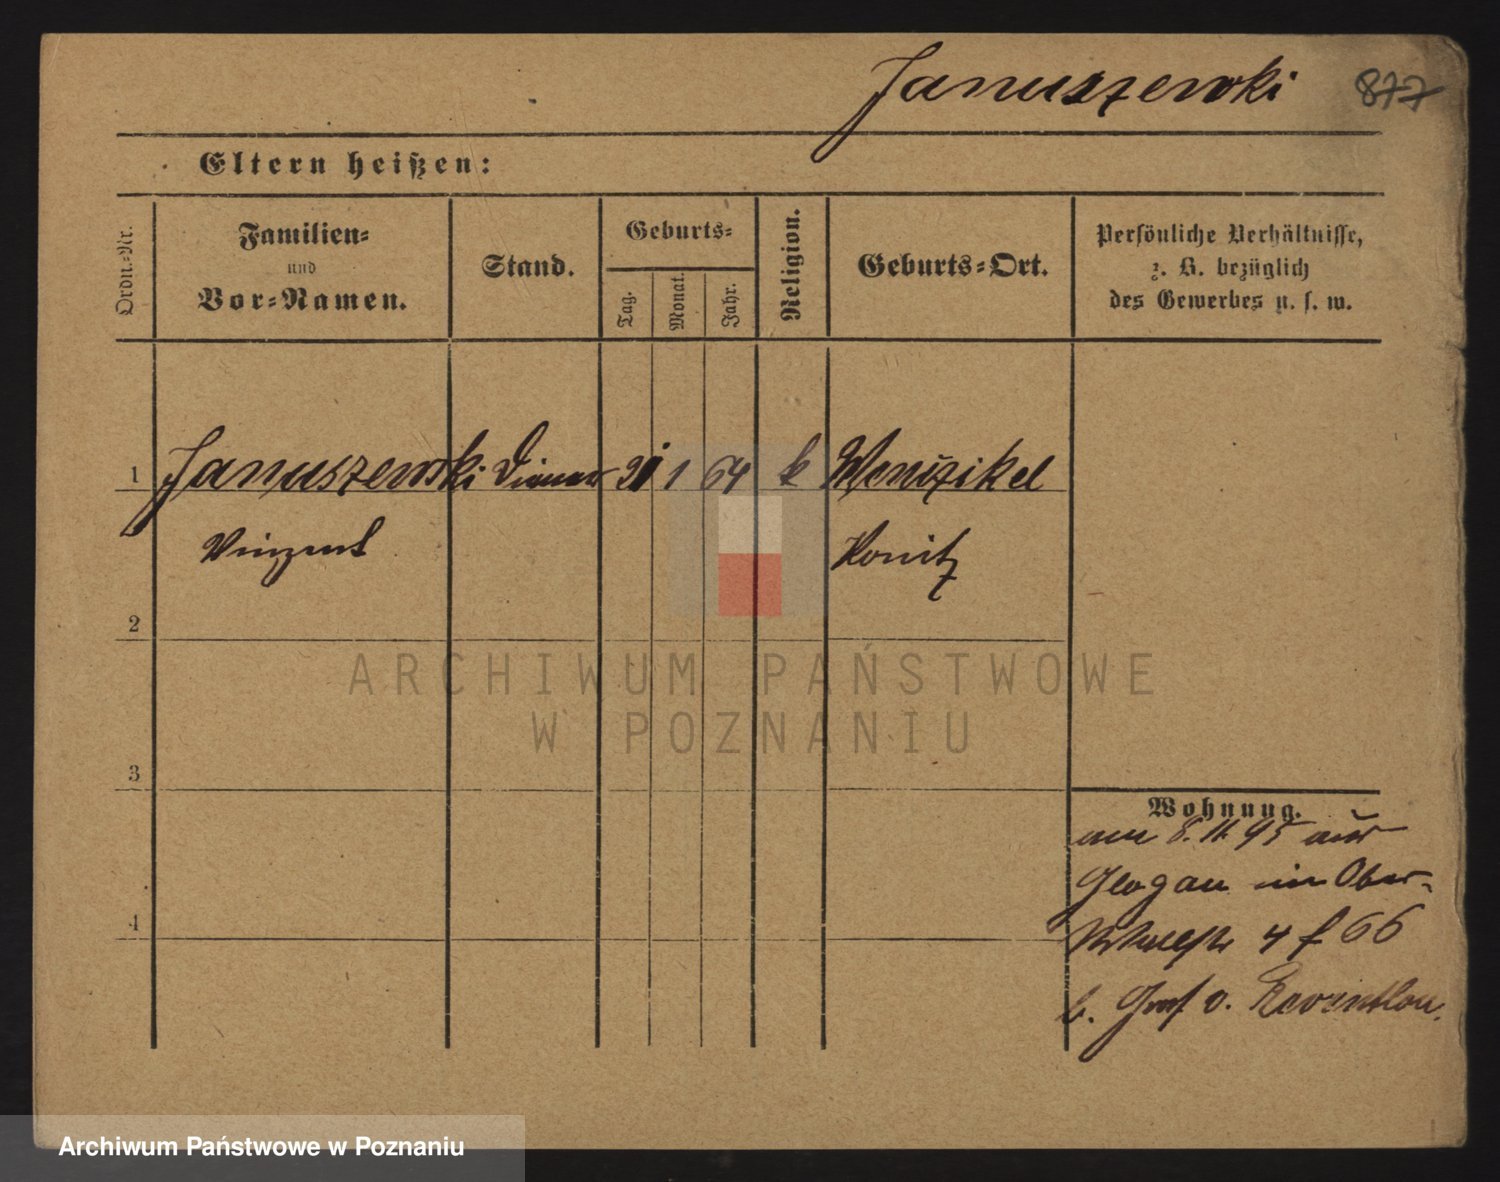 Januszewski 877
Eltern heißen:
Ordn.-Nr.
Familien-
und
Vor-Namen.
Stand.
Geburts-
Tag.
Monat.
Jahr.
Religion.
Geburts-Ort.
Persönliche Verhältnisse,
z. B. bezüglich
des Gewerbes u. s. w.
1 Januszewski Diener 1 64 k
Vinzent Konitz
2
3
4
Wohnung.
am 8. 11. 95 aus
Glogau in Ober-
4 f 66
b. Graf v. Reventlou.
ARCHIWUM PAŃSTWOWE
W POZNANIU
Archiwum Państwowe w Poznaniu